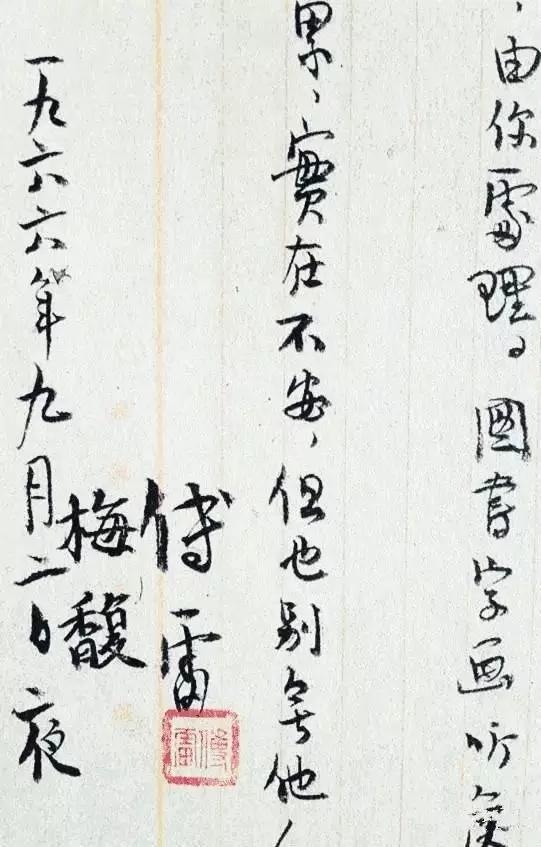 ，由你處理。圖書字画听候
累，實在不安，但也別無他
傅雷
傅雷
梅馥
一九六六年九月二日夜